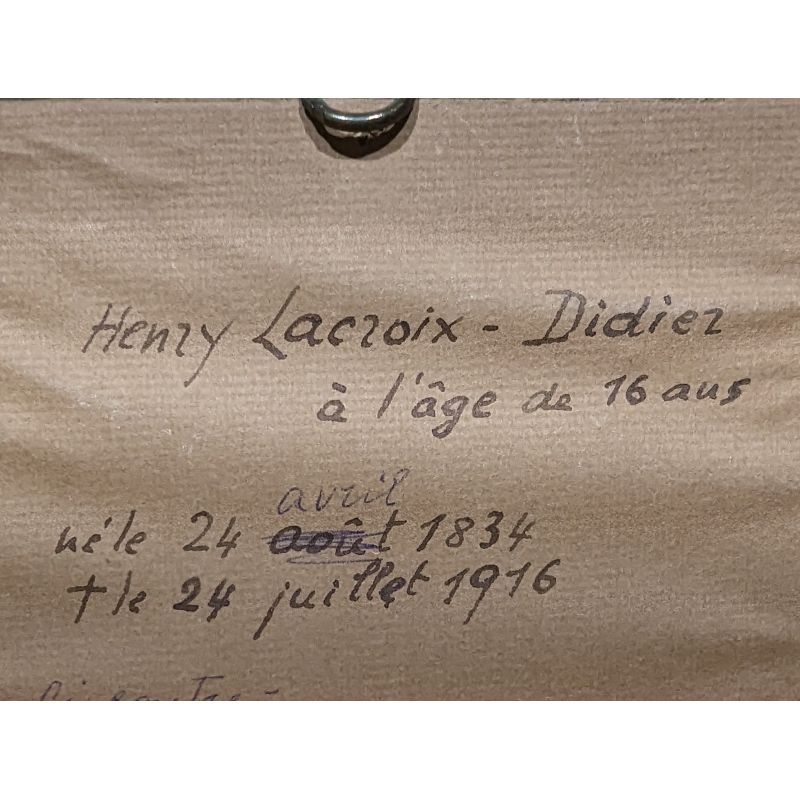 Henry Lacroix - Didier
à l'âge de 16 ans
avril
né le 24 août 1834
† le 24 juillet 1916